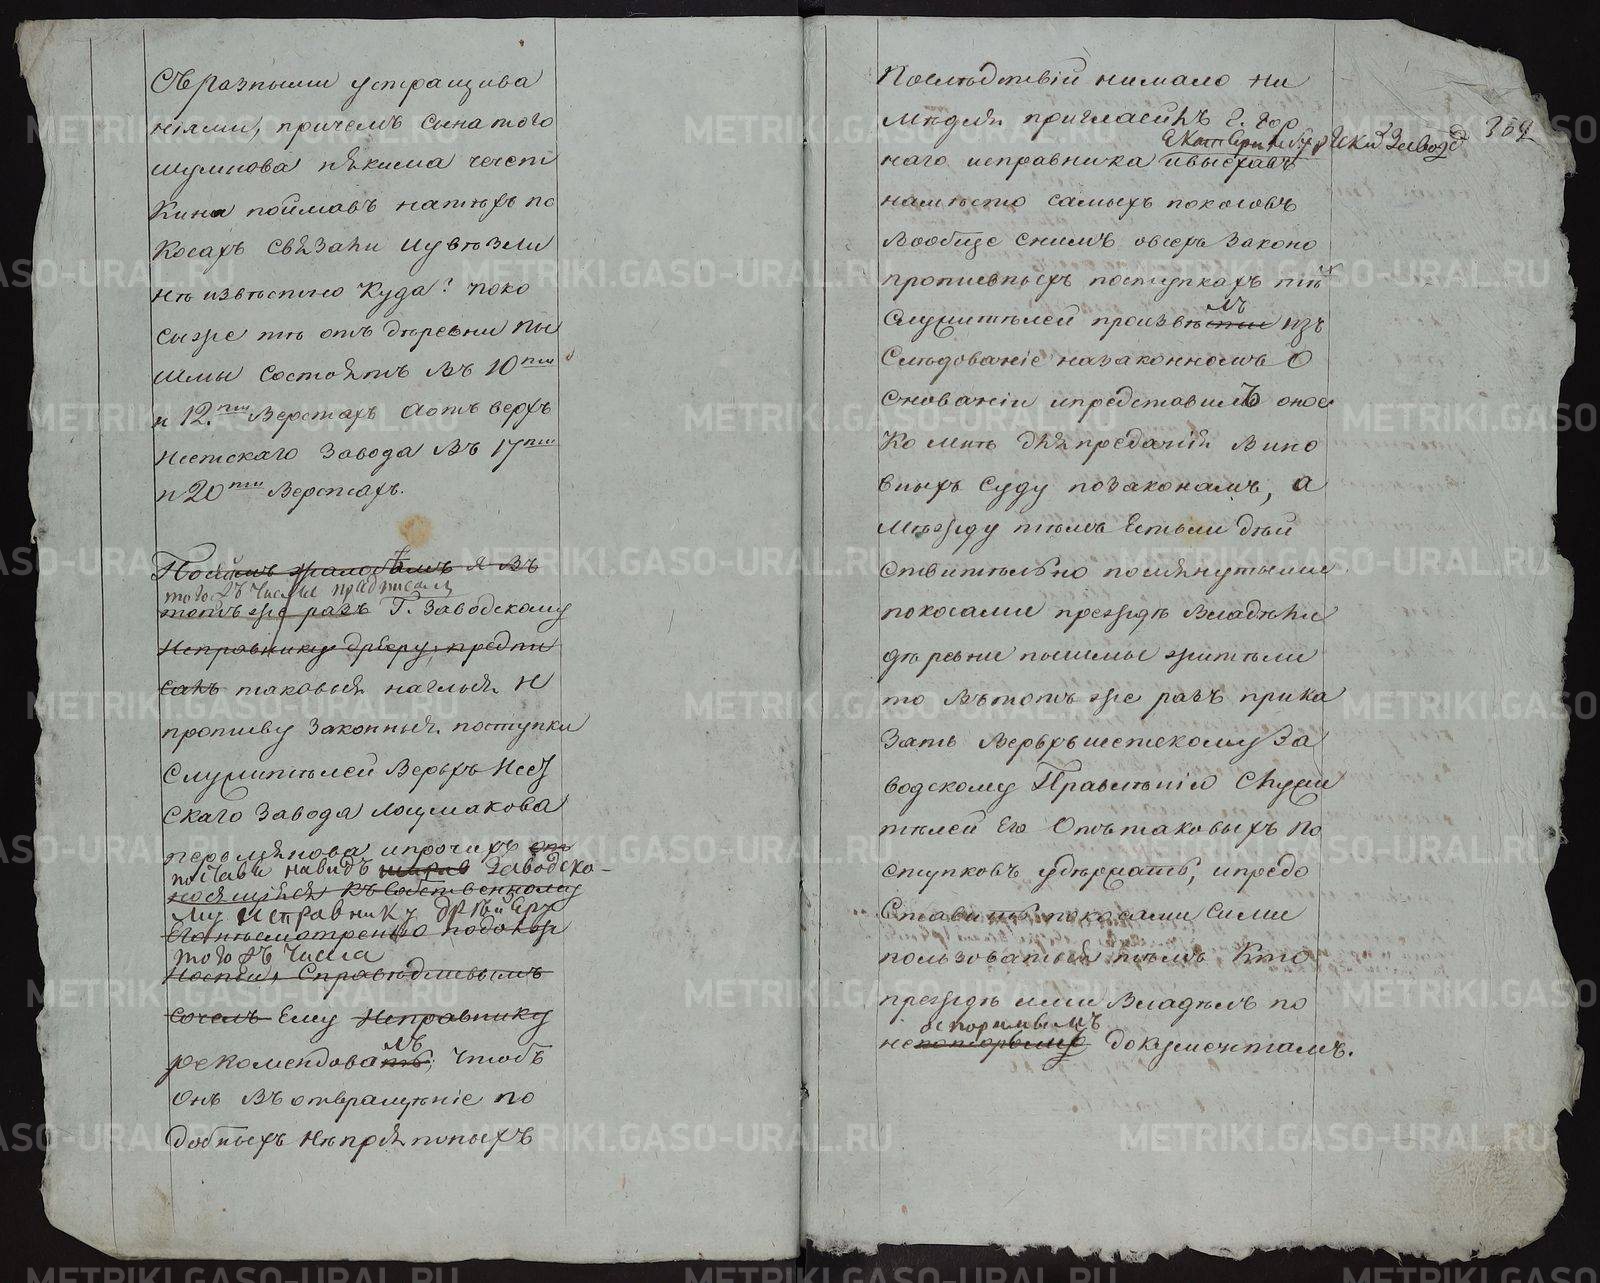 Съ разными устращива
ніями, причемъ сына того
Шумилова Якима
поймавъ на тѣхъ по
косахъ связали и увѣзли
не извѣстно куда? поко
сы же тѣ отъ деревни Пы
шмы состоятъ въ 10ти
и 12.ти верстахъ а отъ Верхъ
Исетскаго завода въ 17ти
и 20ти верстахъ.
я въ
того жъ числа предписалъ
тотъ же разъ Г. Заводскому
Исправнику предпи
салъ таковыя наглыя и
противу законныя поступки
служителей Верхъ Исет
скаго завода
и прочихъ
поставя на видъ Заводско-
къ собственному
му исправнику
того жъ числа
Справедливымъ
сочелъ Ему Исправнику
рекомендовать, лъ чтобъ
онъ въ отвращеніе по
добныхъ непріятныхъ
Послѣдствій нимало ни
медля пригласилъ Г. Гор
359
наго исправника и выѣхавъ
на мѣсто самыхъ покосовъ
вообще съ нимъ о всехъ законо
противныхъ поступкахъ тѣхъ
лъ
служителей произвѣсти изъ
слѣдованіе на законномъ о
снованіи и представилъ оное
ко мнѣ для преданія вино
вныхъ суду по законамъ, а
между тѣмъ Естьли дѣй
ствительно помянутыми
покосами прежде владѣли
деревни Пышмы жители
то въ тотъ же разъ прика
зать Верхъ Исетскому за
водскому Правленію служи
телей Его отъ таковыхъ по
ступковъ удержать, и предо
ставить покосами сими
пользоватся тѣмъ кто
прежде ими владѣлъ по
оспоримымъ
не документамъ.